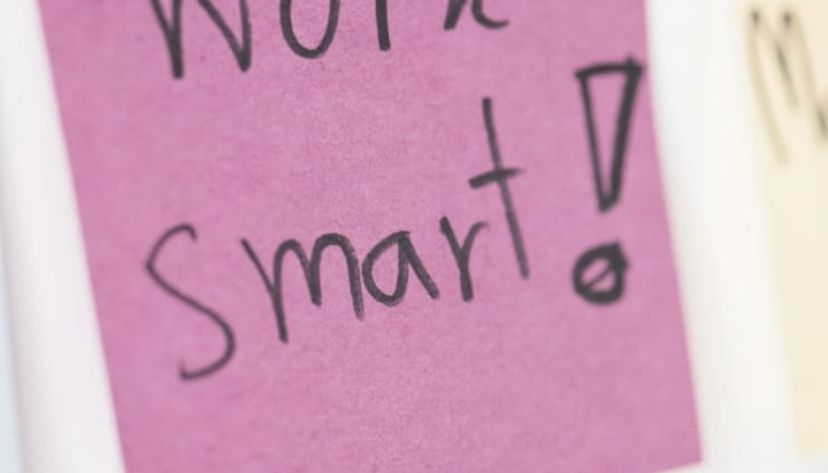 Work
Smart!